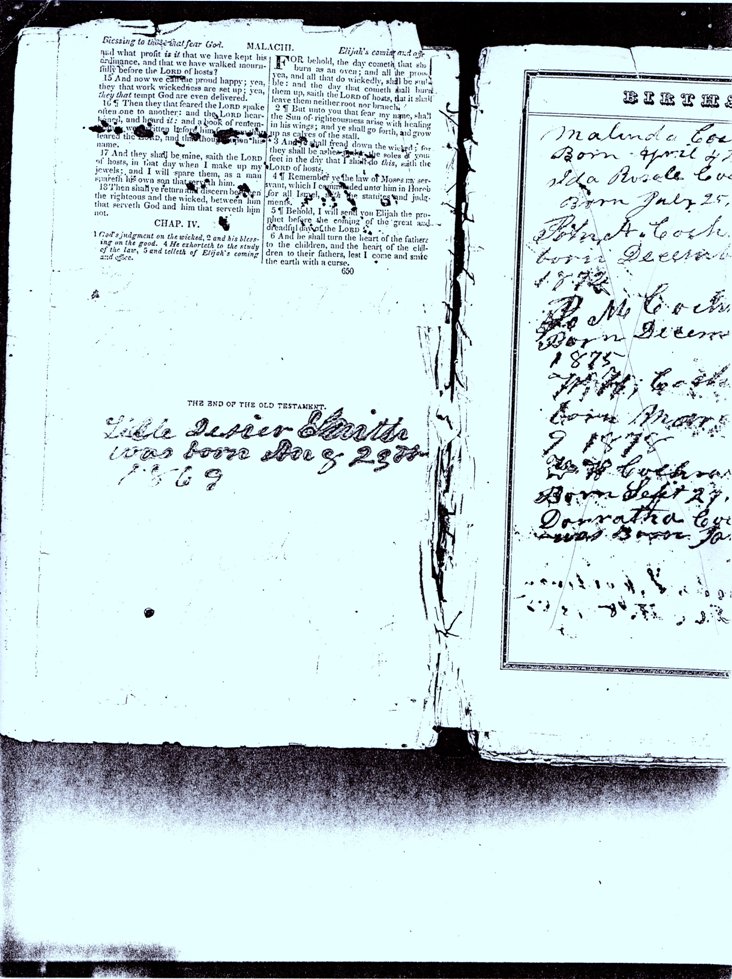 Blessing to those that fear God.
MALACHI.
Elijah's coming and
and what profit is it that we have kept his
ordinance, and that we have walked mourn-
fully before the LORD of hosts?
15 And now we call the proud happy; yea,
they that work wickedness are set up; yea,
they that tempt God are even delivered.
16 ¶ Then they that feared the LORD spake
often one to another: and the LORD hear-
kened, and heard it: and a book of remem-
before him
feared the LORD, and that thought upon his
name.
17 And they shall be mine, saith the LORD
of hosts, in that day when I make up my
jewels; and I will spare them, as a man
spareth his own son that serveth him.
18 Then shall ye return and discern between
the righteous and the wicked, between him
that serveth God and him that serveth him
not.
CHAP. IV.
1 God's judgment on the wicked, 2 and his bless-
ing on the good. 4 He exhorteth to the study
of the law, 5 and telleth of Elijah's coming
and office.
FOR behold, the day cometh that
burn as an oven; and all the
yea, and all that do wickedly, shall be stub-
ble: and the day that cometh shall burn
them up, saith the LORD of hosts, that it shall
leave them neither root nor branch.
2 ¶ But unto you that fear my name, shall
the Sun of righteousness arise with healing
in his wings; and ye shall go forth, and grow
up as calves of the stall.
3 And ye shall tread down the wicked; for
they shall be ashes under the soles of your
feet in the day that I shall do this, saith the
LORD of hosts.
4 ¶ Remember ye the law of Moses my ser-
vant, which I commanded unto him in Horeb
for all Israel, with the statutes and judg-
ments.
5 ¶ Behold, I will send you Elijah the pro-
phet before the coming of the great and
dreadful day of the LORD:
6 And he shall turn the heart of the fathers
to the children, and the heart of the chil-
dren to their fathers, lest I come and smite
the earth with a curse.
650
THE END OF THE OLD TESTAMENT.
Smith
was born Aug 23
1869
BIRTHS
Malinda
Born April
Ida
Born July 25,
John A. Coch
born Decemb
1872
M Coch
Born Decem
1875
born Mar
9 1878
W H Cochra
Born Sept 27,
Dorratha
was Born Ja